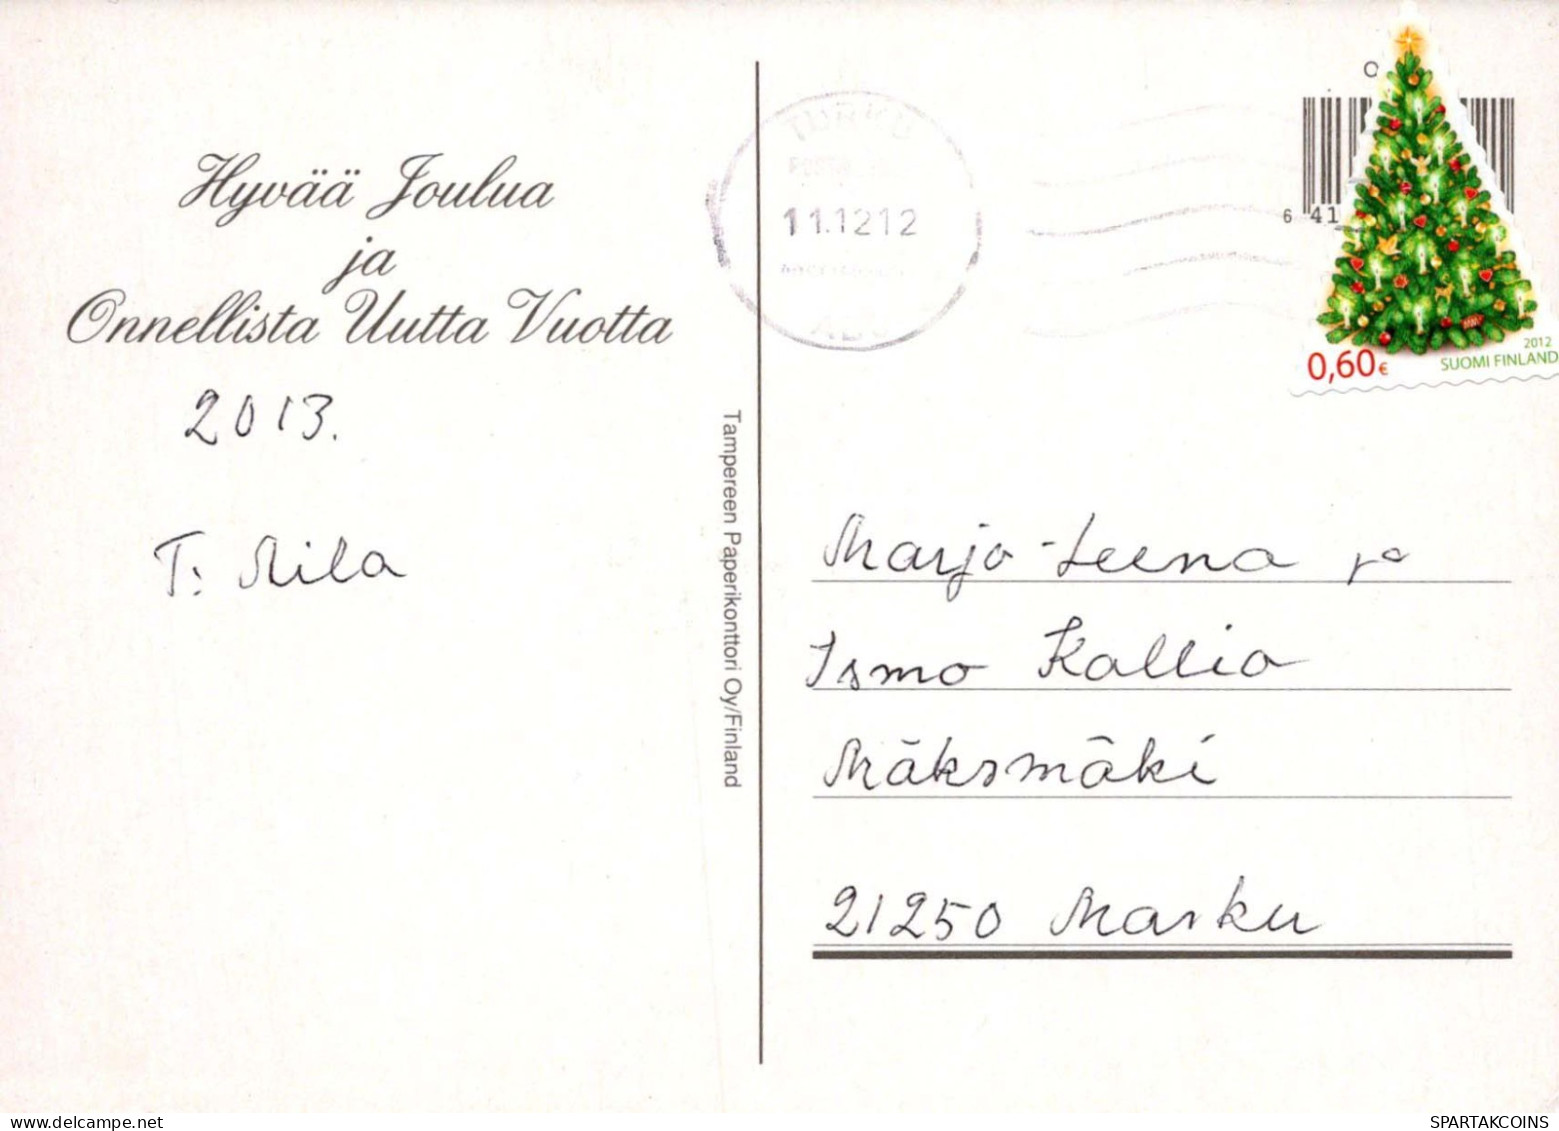 Hyvää Joulua
ja
Onnellista Uutta Vuotta
2013.
T: Mila
Tampereen Paperikonttori Oy/Finland
TURKU
11.12.12
ÅBO
O
6 41
2012
0,60€
SUOMI FINLAND
Marjo-Leena ja
Ismo Kallio
Mäksmäki
21250 Masku
SPARTAKCOINS